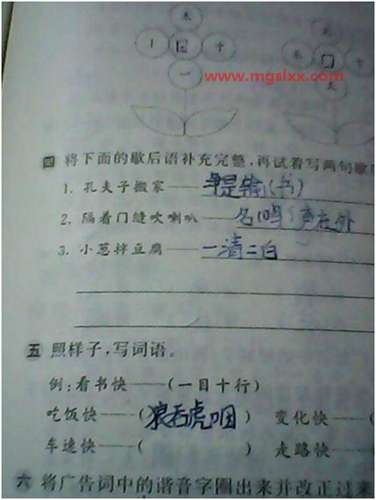 www.mgslxx.com
子
一
四 将下面的歇后语补充完整,再试着写两句歇
1. 孔夫子搬家——是输(书)
2. 隔着门缝吹喇叭——名鸣(声在外
3. 小葱拌豆腐——一清二白
五 照样子,写词语。
例:看书快——(一目十行)
吃饭快——(狼吞虎咽) 变化快——
车速快——( ) 走路快——(
六 将广告词中的谐音字圈出来并改正过来